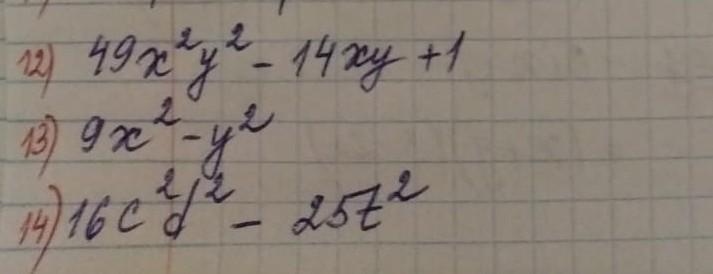 12) 49x²y² - 14xy + 1
13) 9x² - y²
14) 16c²d² - 25z²